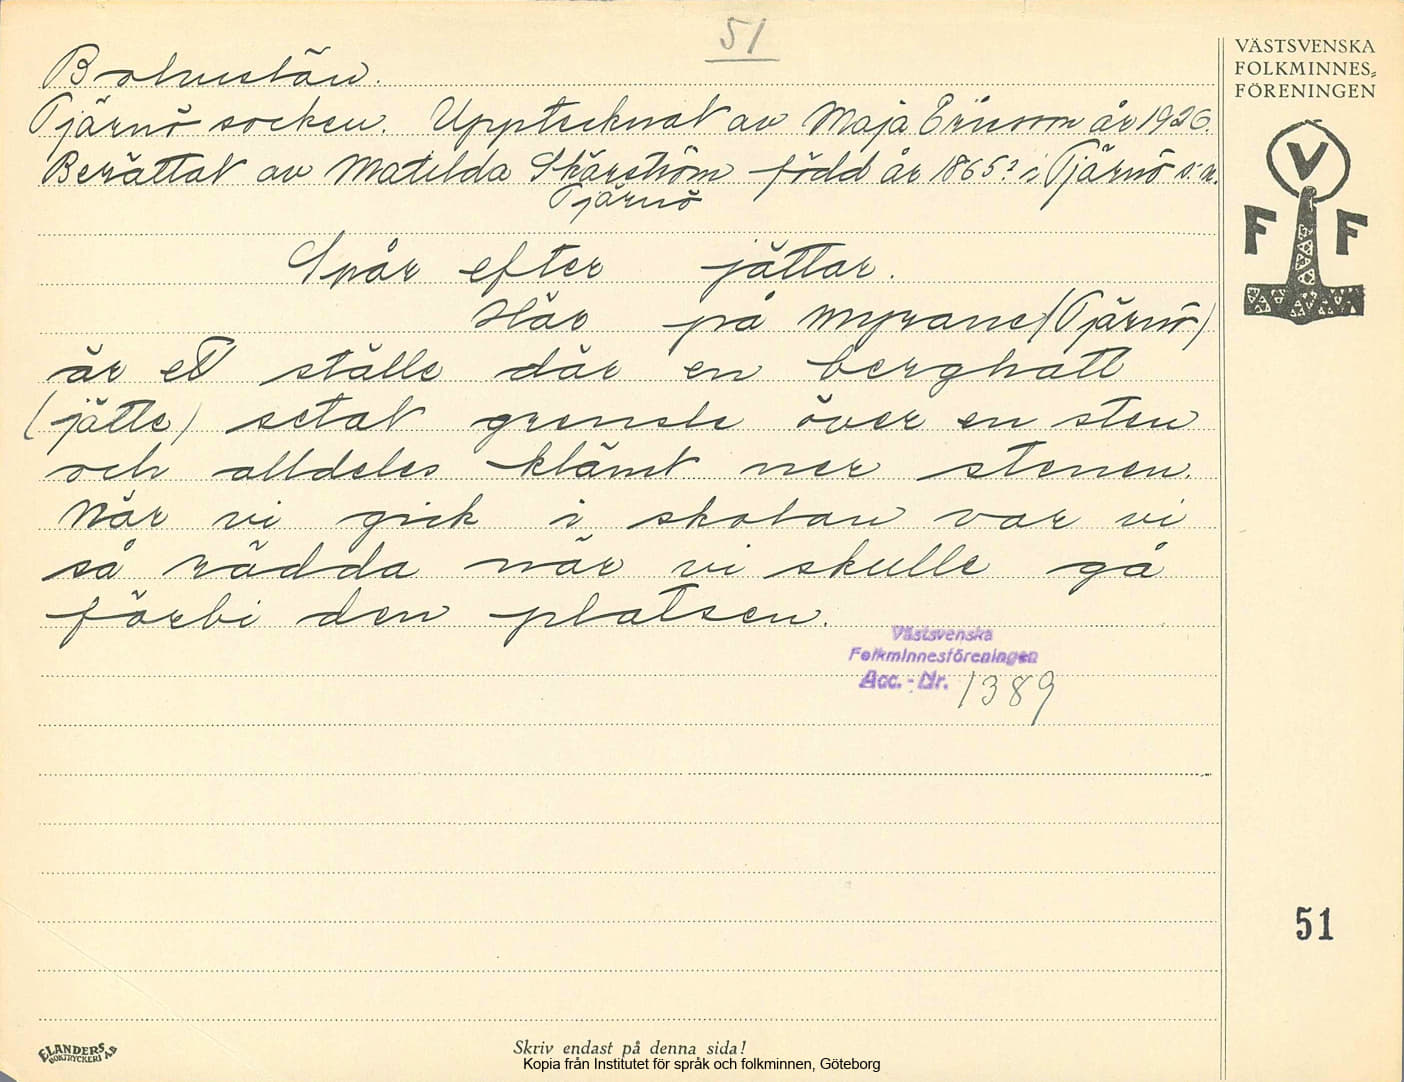 51
Bohuslän.
Tjärnö socken. Upptecknat av Maja Ericson år 1926.
Berättat av Matilda Skärström född år 1865? i Tjärnö s:n.
Tjärnö
Spår efter jättar.
Här på myrane (Tjärnö)
är ett ställe där en berghatt
(jätte) setat grensle över en sten
och alldeles klämt ner stenen.
När vi gick i skolan var vi
så rädda när vi skulle gå
förbi den platsen.
Västsvenska
Folkminnesföreningen
Acc. - Nr. 1389
VÄSTSVENSKA
FOLKMINNES-
FÖRENINGEN
V
F F
51
ELANDERS
BOKTRYCKERI A.B
Skriv endast på denna sida!
Kopia från Institutet för språk och folkminnen, Göteborg